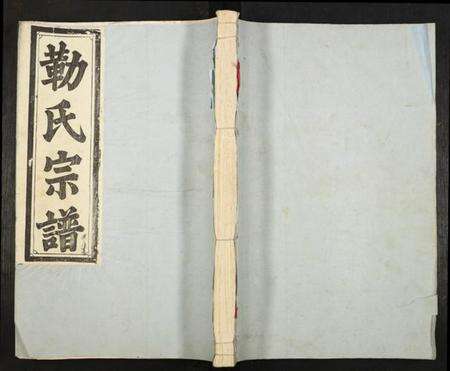 勒氏宗譜